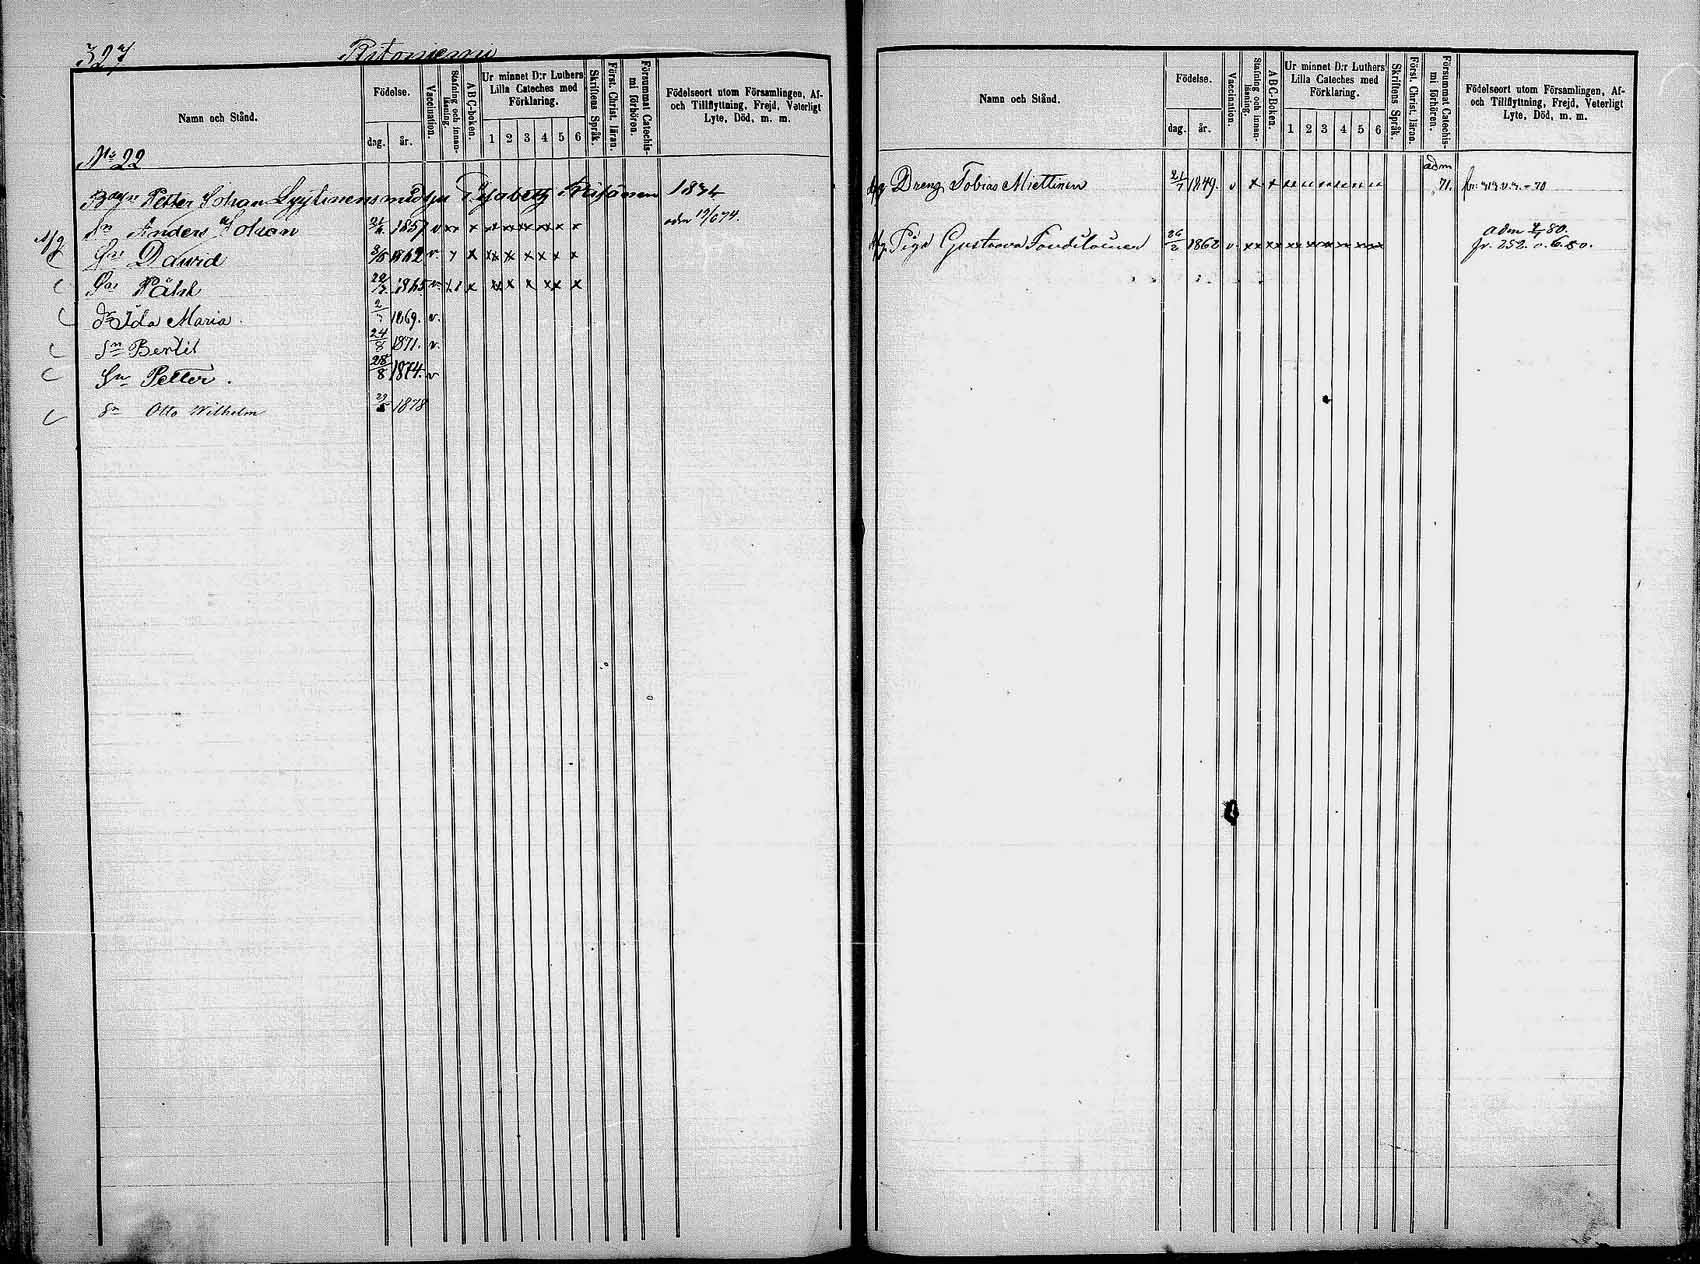 327 Ritoniemi
Namn och Stånd.
Födelse.
dag. år.
Vaccination.
Stafning och innanläsning.
ABC-boken.
Ur minnet D:r Luthers Lilla Cateches med Förklaring.
1 2 3 4 5 6
Skriftens Språk.
Först. Christ. läran.
Försummat Catechismi förhören.
Födelseort utom Församlingen, Af- och Tillflyttning, Frejd, Veterligt Lyte, Död, m. m.
No 22
Petter Johan Lyytinens 1834
Sn Anders Johan 1857 v x x x x x x x adm
Sn David 1862 v. x x x x x x x
Sn Påhl 22 1865 x x x x x x
dr Ida Maria. 2 1869. v.
Sn Bertil 24/8 1871. v.
Sn Petter. 28/8 1874. v
Sn Otto Wilhelm 29/5 1878
Namn och Stånd.
Födelse.
dag. år.
Vaccination.
Stafning och innanläsning.
ABC-Boken.
Ur minnet D:r Luthers Lilla Cateches med Förklaring.
1 2 3 4 5 6
Skriftens Språk.
Först. Christ. läran.
Försummat Catechismi förhören.
Födelseort utom Församlingen, Af- och Tillflyttning, Frejd, Veterligt Lyte, Död, m. m.
Dreng Tobias Miettinen 1849. v x x adm 71.
Piga Gustaava 26/2 1862 v. adm 80.
fr. 252.